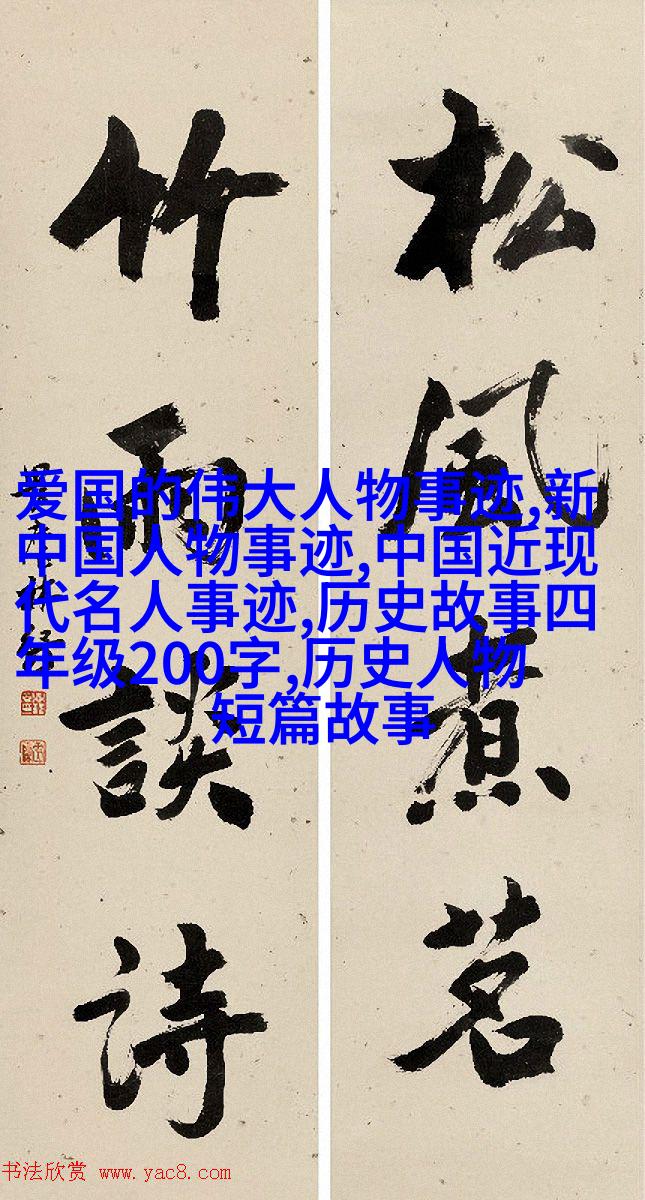 松風煮茗
竹雨談诗
爱国的伟大人物事迹,新
中国人物事迹,中国近现
代名人事迹,历史故事四
年级200字,历史人物
短篇故事
书法欣赏 www.yac8.com